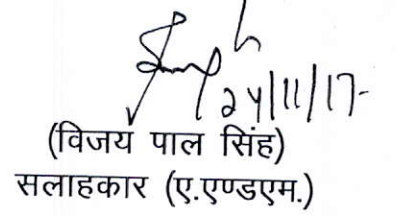 24/11/17
(विजय पाल सिंह)
सलाहकार (ए.एण्डएम.)